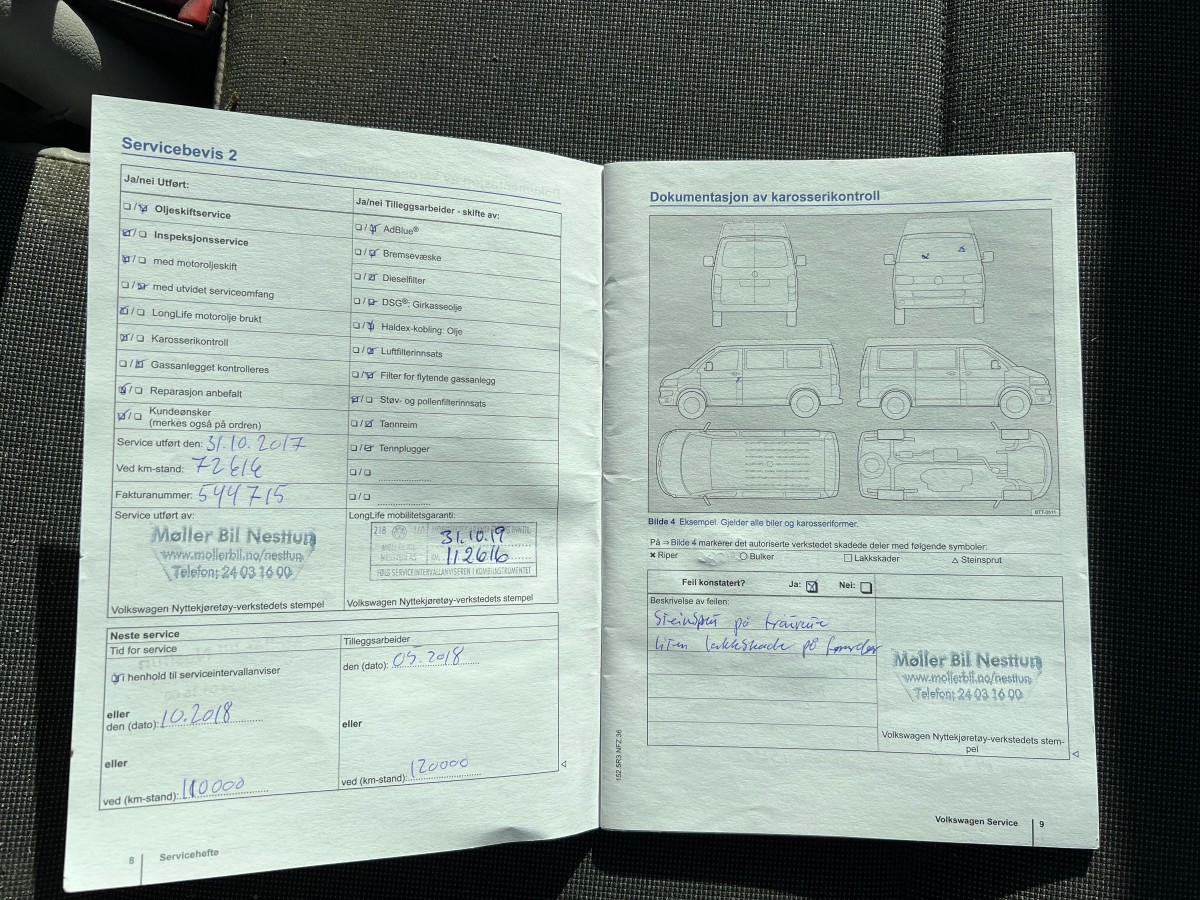 Servicebevis 2
Ja/nei Utført:
❏ / ☑ Oljeskiftservice
☑ / ❏ Inspeksjonsservice
☑ / ❏ med motoroljeskift
❏ / ☑ med utvidet serviceomfang
☑ / ❏ LongLife motorolje brukt
☑ / ❏ Karosserikontroll
❏ / ☑ Gassanlegget kontrolleres
☑ / ❏ Reparasjon anbefalt
☑ / ❏ Kundeønsker
(merkes også på ordren)
Service utført den: 31.10.2017
Ved km-stand: 72616
Fakturanummer: 544715
Service utført av:
Møller Bil Nesttun
www.mollerbil.no/nesttun
Telefon: 24 03 16 00
Volkswagen Nyttekjøretøy-verkstedets stempel
Ja/nei Tilleggsarbeider - skifte av:
❏ / ☑ AdBlue®
❏ / ☑ Bremsevæske
❏ / ☑ Dieselfilter
❏ / ☑ DSG®; Girkasseolje
❏ / ☑ Haldex-kobling: Olje
❏ / ☑ Luftfilterinnsats
❏ / ☑ Filter for flytende gassanlegg
☑ / ❏ Støv- og pollenfilterinnsats
❏ / ☑ Tannreim
❏ / ☑ Tennplugger
❏ / ❏
❏ / ❏
LongLife mobilitetsgaranti:
218
31.10.19
112616
FØLG SERVICEINTERVALLANVISEREN I KOMBIINSTRUMENTET
Volkswagen Nyttekjøretøy-verkstedets stempel
Neste service
Tid for service
☑ I henhold til serviceintervallanviser
eller
den (dato): 10.2018
eller
ved (km-stand): 110000
Tilleggsarbeider
den (dato): 05.2018
eller
ved (km-stand): 120000
8 Servicehefte
Dokumentasjon av karosserikontroll
BTT-0511
Bilde 4 Eksempel. Gjelder alle biler og karosseriformer.
På ⇒ Bilde 4 markerer det autoriserte verkstedet skadede deler med følgende symboler:
✕ Riper ○ Bulker □ Lakkskader △ Steinsprut
Feil konstatert? Ja: ☒ Nei: ❏
Beskrivelse av feilen:
Steinsprut på frontrute
liten lakkskade på
Møller Bil Nesttun
www.mollerbil.no/nesttun
Telefon: 24 03 16 00
Volkswagen Nyttekjøretøy-verkstedets stem-
pel
152.5R3.NFZ.36
Volkswagen Service 9